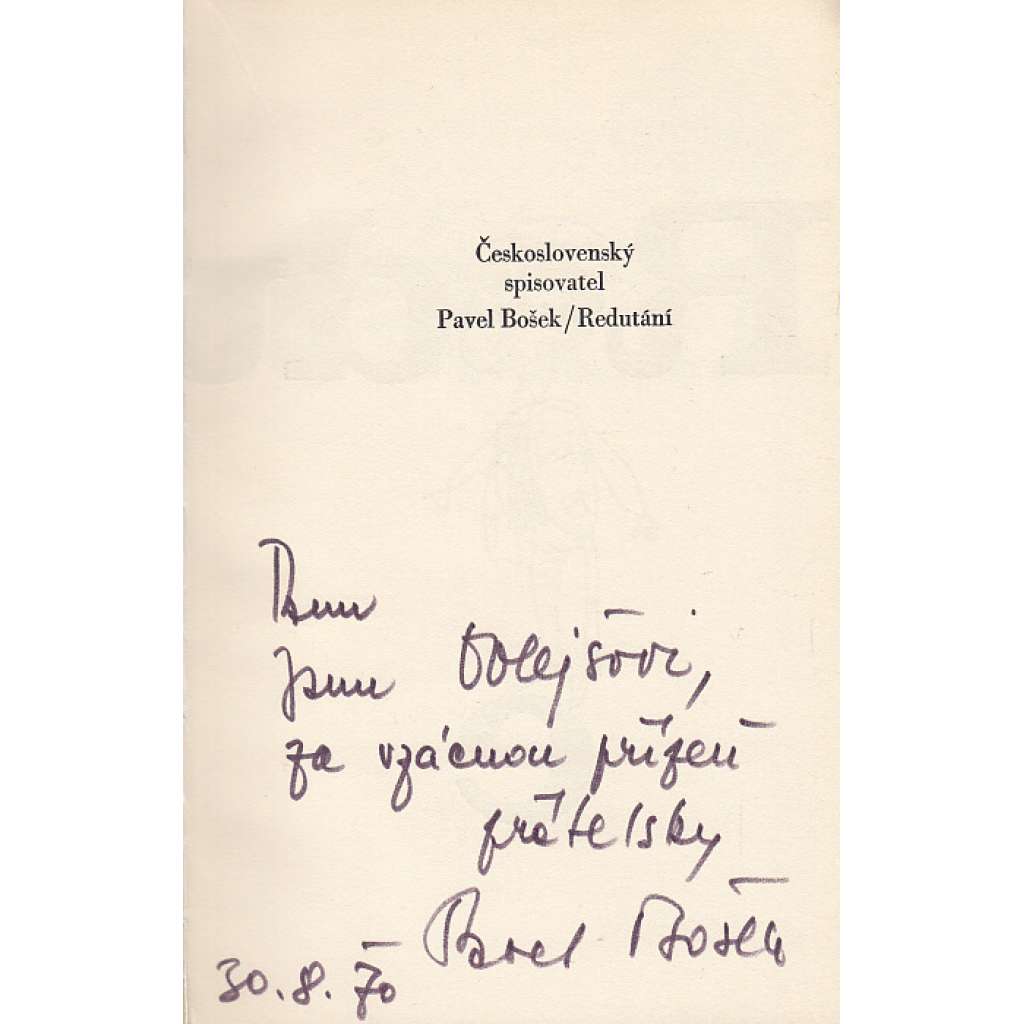 Československý
spisovatel
Pavel Bošek/Redutání
Panu
Janu Dolejšovi,
za vzácnou přízeň
přátelsky
Pavel Bošek
30.8.70